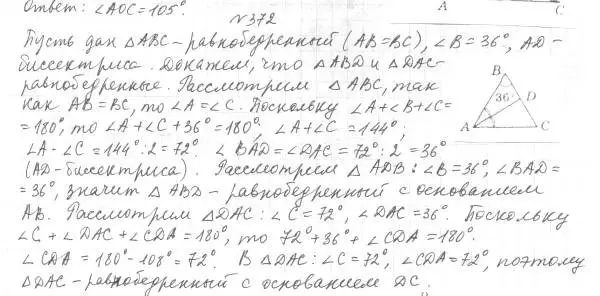 Ответ: ∠AOC = 105°.
A C
№372
Пусть дан △ABC – равнобедренный (AB=BC), ∠B=36°, AD –
биссектриса. Докажем, что △ABD и △DAC –
равнобедренные. Рассмотрим △ABC, так
как AB=BC, то ∠A=∠C. Поскольку ∠A+∠B+∠C=
=180°, то ∠A+∠C+36°=180°, ∠A+∠C=144°,
∠A=∠C=144°:2=72°. ∠BAD=∠DAC=72°:2=36°
(AD – биссектриса). Рассмотрим △ADB: ∠B=36°, ∠BAD=
=36°, значит △ABD – равнобедренный с основанием
AB. Рассмотрим △DAC: ∠C=72°, ∠DAC=36°. Поскольку
∠C+∠DAC+∠CDA=180°, то 72°+36°+∠CDA=180°.
∠CDA=180°-108°=72°. В △DAC: ∠C=72°, ∠CDA=72°, поэтому
△DAC – равнобедренный с основанием DC.
B
36°
D
A C